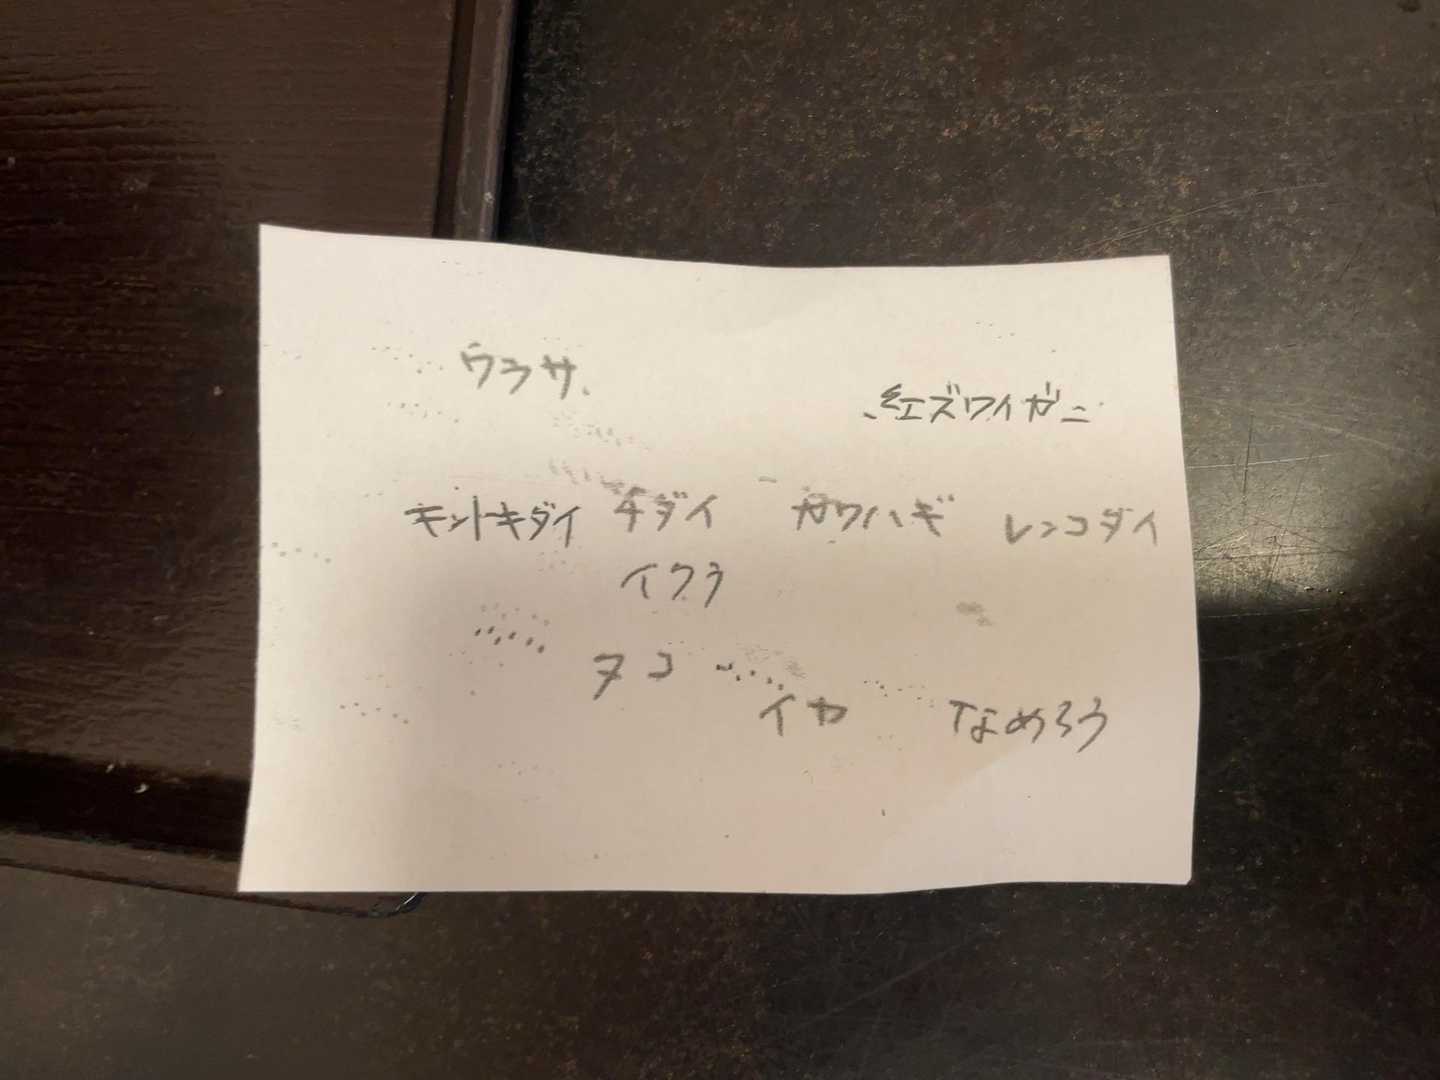 ウニ サ、
、紅ズワイガニ
キントキダイ チダイ カワハギ レンコダイ
イクラ
タコ
イカ なめろう